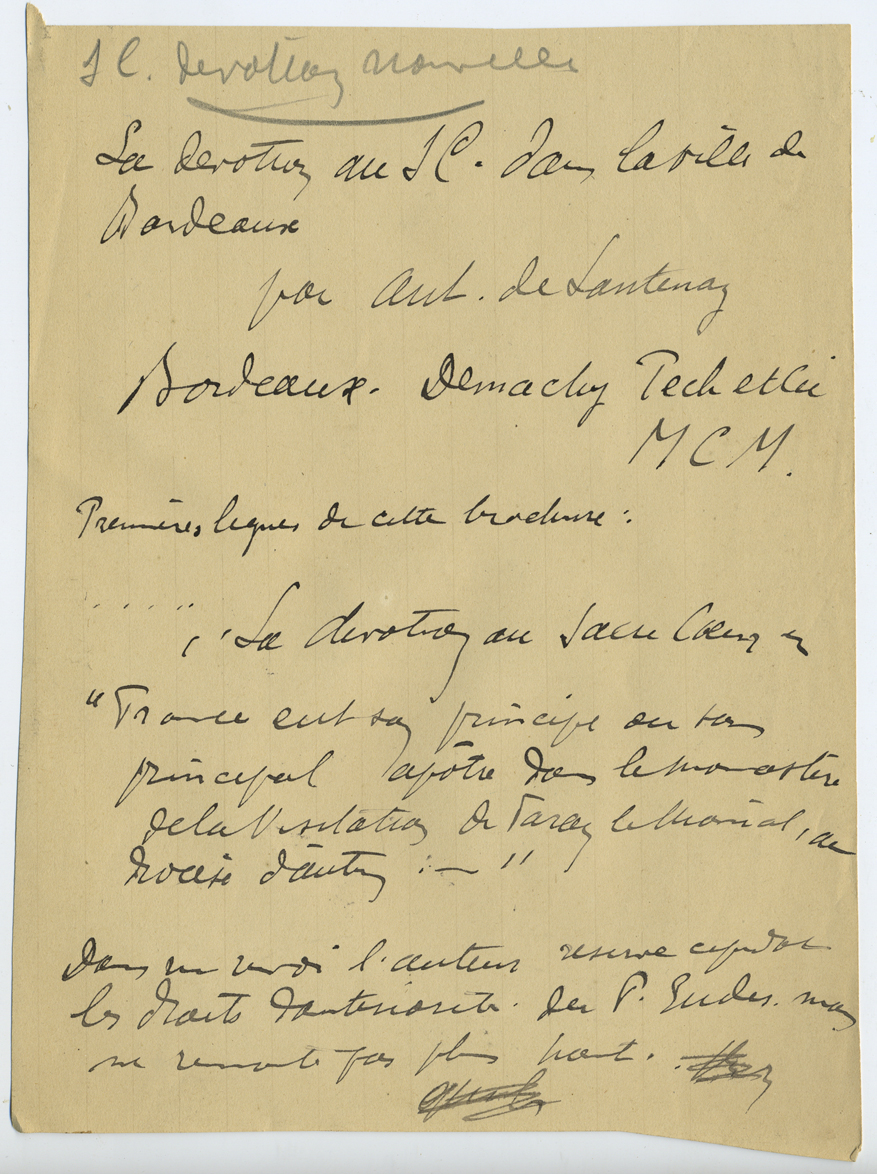 S C. devotion nouvelle
La devotion au S C. dans la ville de
Bordeaux
par Ant. de Lantenay
Bordeaux. Demachy Pech et Cie
M C M.
Premières lignes de cette brochure :
. . . . " , ' La devotion au Sacre Coeur en
" France eut son principe ou son
principal apôtre dans le monastère
de la Visitation de Paray le Monial, au
diocèse d'autun : — "
Dans un renvoi l'auteur reserve cependant
les droits d'anteriorite. du P. Eudes. mais
ne remonte pas plus haut.